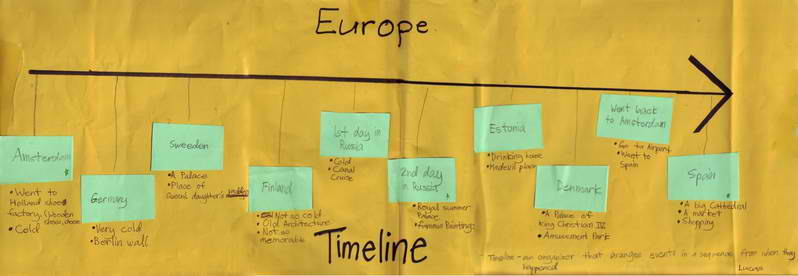 Europe
Amsterdam
• Went to
Holland shoe
factory, (Wooden
shoes,
• Cold
Germany
• Very cold
• Berlin wall
Sweeden
• A Palace
• Place of
Queens daughter's wedding
Finland
• Not so cold
Old Architecture
• Not so
memorable
1st day in
Russia
• Cold
• Canal
Cruise
2nd day
in Russia
• Royal summer
Palace
• Famous Paintings
Estonia
• Drinking hose
• Medevil place
Denmark
• A Palace of
King Christian IV
• Amusement Park
Went back
to Amsterdam
• Go to Airport
• Went to
Spain
Spain
• A big Cathedral
• A market
• Shopping
Timeline
Timeline - an organiser that aranges events in a sequense from when they
happened
Lucas